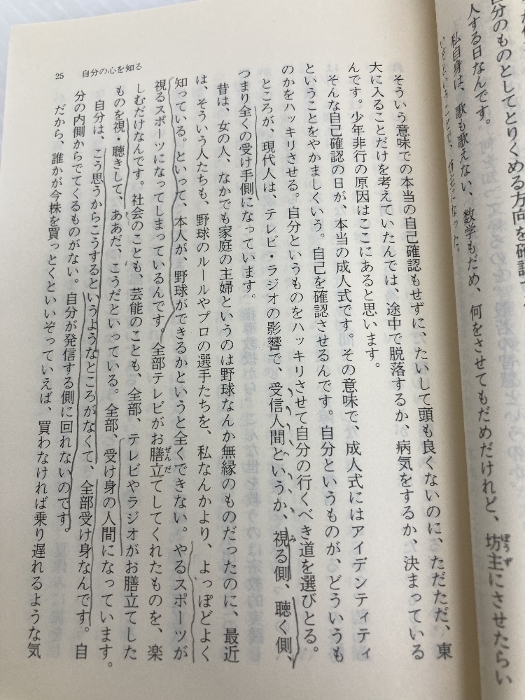 人する日なんです。
私自身は、歌も歌えない、数学もだめ、何をさせてもだめだけれど、坊主にさせたらい
25 自分の心を知る
そういう意味での本当の自己確認もせずに、たいして頭も良くないのに、ただただ、東
大に入ることだけを考えていたんでは、途中で脱落するか、病気をするか、決まっている
んです。少年非行の原因はここにあると思います。
そんな自己確認の日が、本当の成人式です。その意味で、成人式にはアイデンティティ
ということをやかましくいう。自己を確認させるんです。自分というものが、どういうも
のかをハッキリさせる。自分というものをハッキリさせて自分の行くべき道を選びとる。
ところが、現代人は、テレビ・ラジオの影響で、受信人間というか、視る側、聴く側、
つまり全くの受け手側になっています。
昔は、女の人、なかでも家庭の主婦というのは野球なんか無縁のものだったのに、最近
は、そういう人たちも、野球のルールやプロの選手たちを、私なんかより、よっぽどよく
知っている、といって、本人が、野球ができるかというと全くできない。やるスポーツが
視るスポーツになってしまっているんです。全部テレビがお膳立てしてくれたものを、楽
しむだけなんです。社会のことも、芸能のことも、全部、テレビやラジオがお膳立てした
ものを視・聴きして、ああだ、こうだといっている。全部、受け身の人間になっています。
自分は、こう思うからこうするというようなところがなくて、全部受け身なんです。自
分の内側からでてくるものがない。自分が発信する側に回れないのです。
だから、誰かが今株を買っとくといいぞっていえば、買わなければ乗り遅れるような気